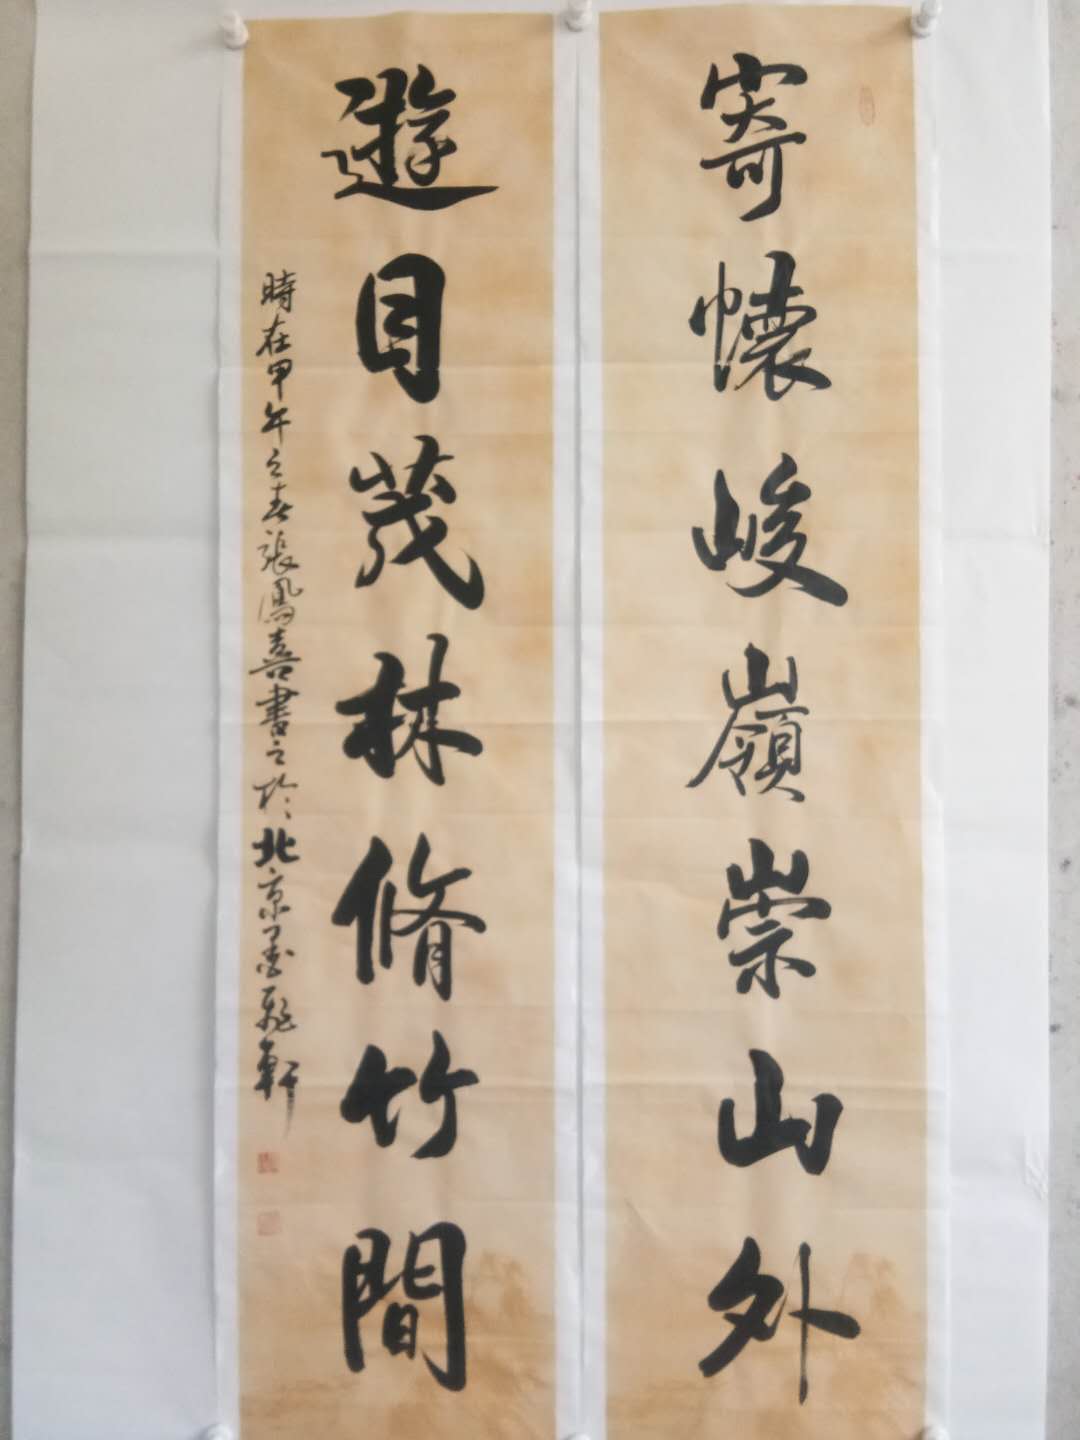 寄懷峻嶺崇山外
遊目茂林脩竹間
時在甲午之春張鳳喜書之於北京墨龍軒